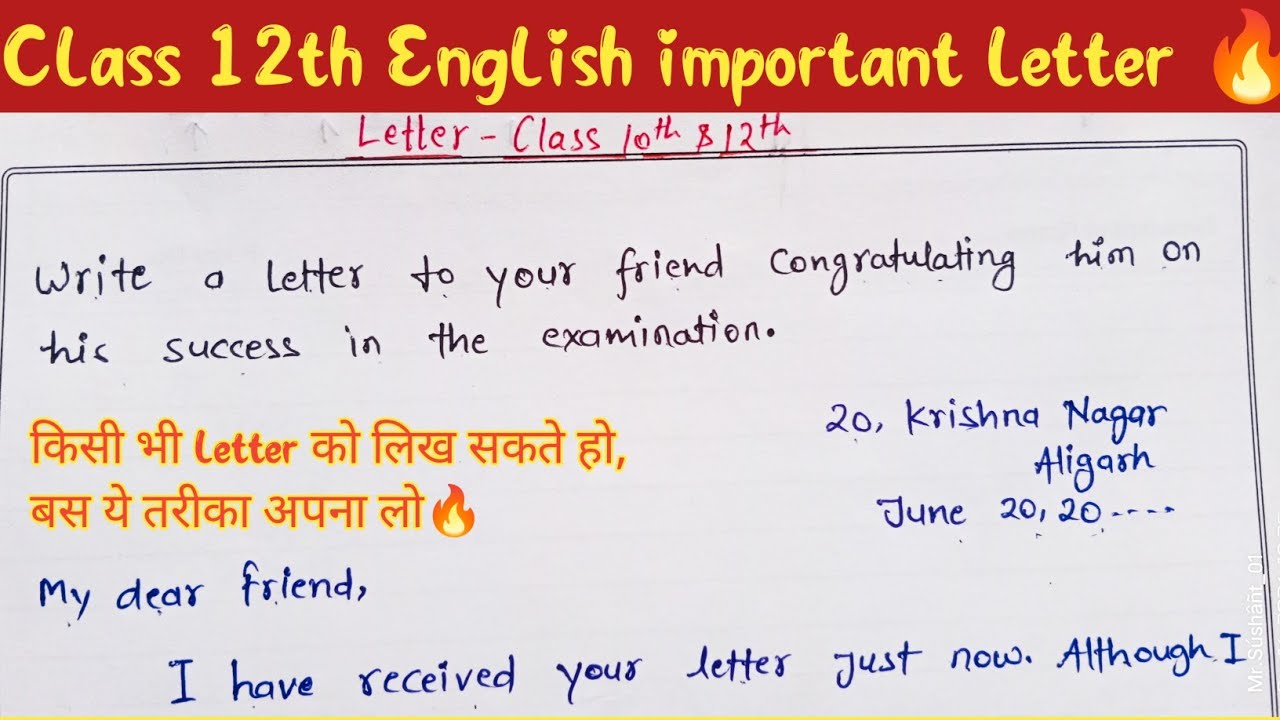 Class 12th English important Letter 🔥
Letter - Class 10th & 12th
Write a letter to your friend congratulating him on
his success in the examination.
20, Krishna Nagar
Aligarh
June 20, 20----
किसी भी Letter को लिख सकते हो,
बस ये तरीका अपना लो🔥
My dear friend,
I have received your letter just now. Although I
Mr. Súshãñt_01